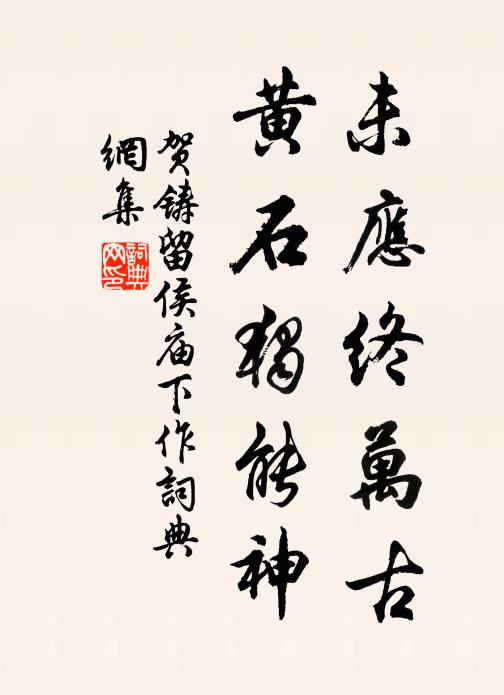 未應終萬古
黄石獨能神
贺鑄留侯庙下作詞典
網集
詞典
网印